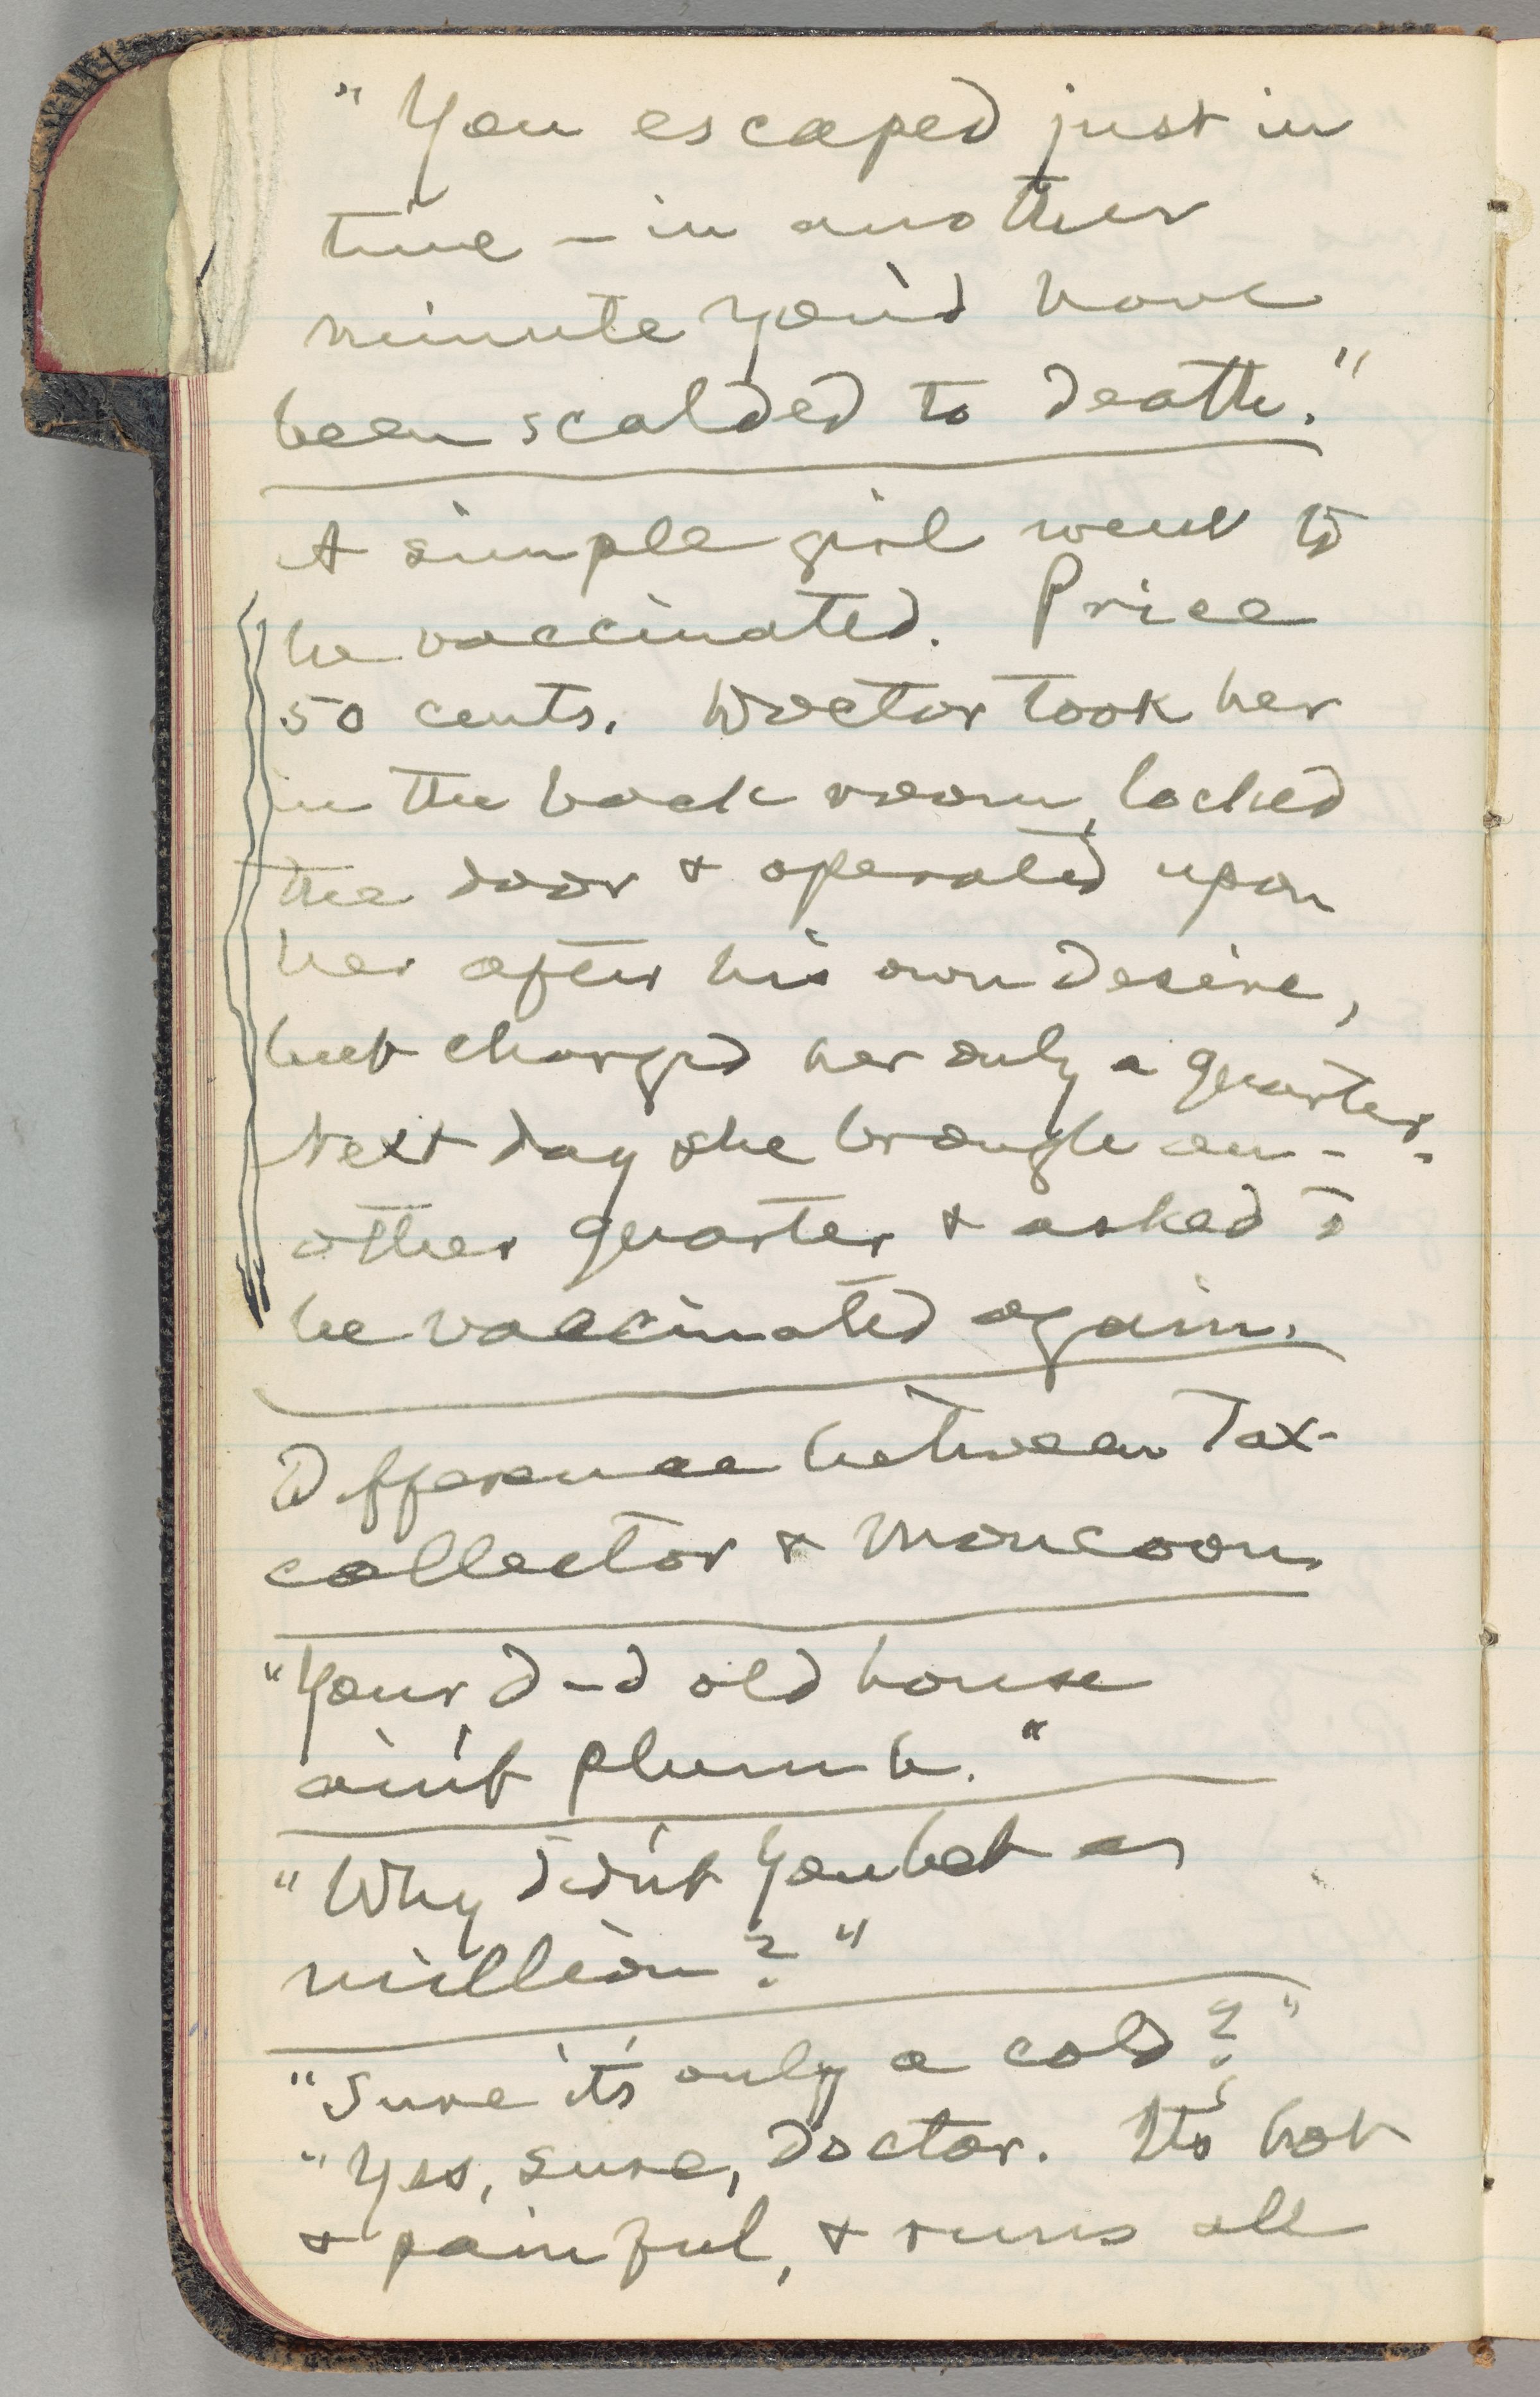 "You escaped just in
time — in another
minute you'd have
been scalded to death."
A simple girl went to
be vaccinated. Price
50 cents. Doctor took her
in the back room, locked
the door & operated upon
her after his own desire,
but charged her only a quarter.
Next day she brought an-
other quarter & asked to
be vaccinated again.
Difference between Tax-
collector &
"Your d—d old house
ain't plumb."
"Why didn't you bet a
million?"
"Sure it's only a cold?"
"Yes, sure, doctor. It's hot
& painful, & runs all